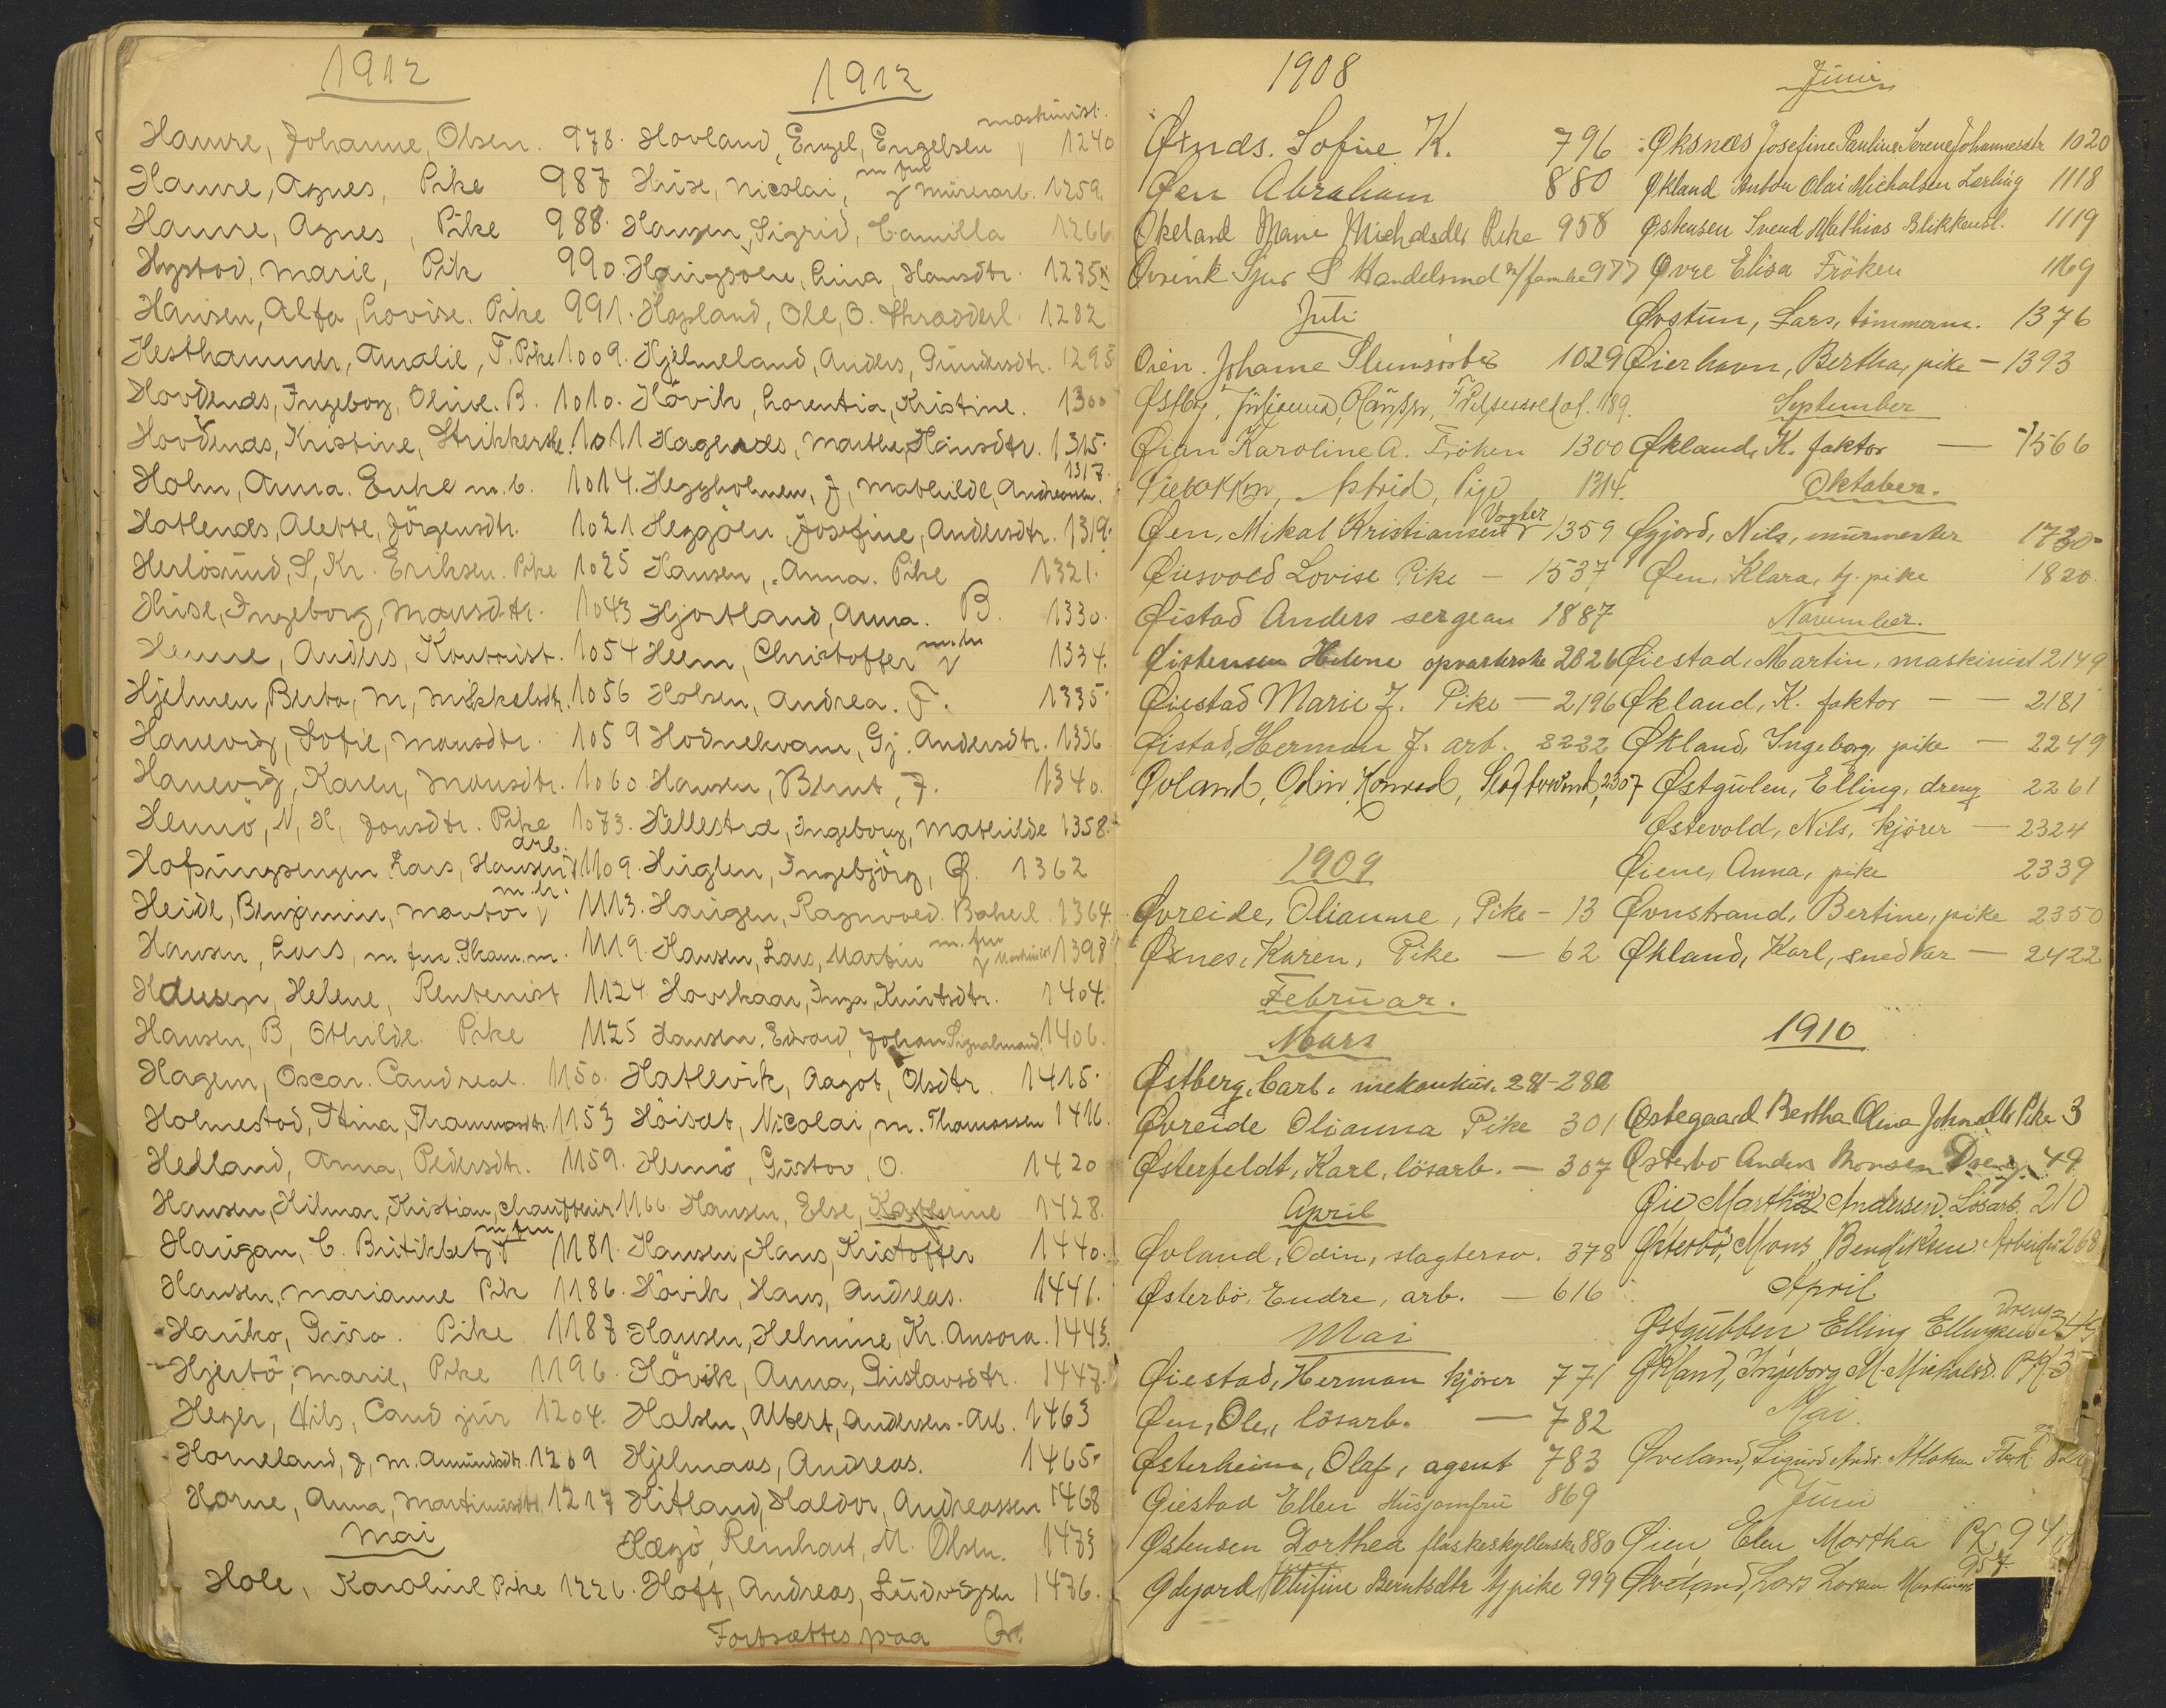 1912
Hamre, Johanne, Olsen. 978.
Hanne, Agnes, Pike 987
Hanne, Agnes, Pike 988.
Hystad, Marie, Pik 990.
Hansen, Alfa, Lovise. Pike 991.
Hesthammer, Amalie, F. Pike 1009.
Hovdenes, Ingeborg, Oline. B. 1010.
Hovdenes, Kristine, Strikkerske. 1011
Holm, Anna. Enke m. b. 1014.
Hatlenes, Alette, Jörgensdtr. 1021
Herlösund, S, Kr. Eriksen. Pike 1025
Huse, Ingeborg, Monsdtr. 1043
Henne, Anders, Kontorist. 1054
Hjelmen, Berta, M, Mikkelsdt. 1056
Hanevig, Sofie, Monsdtr. 1059
Hanevig, Karen, Monsdtr. 1060
Hennö, N, H, Jonsdtr. Pike 1073.
Lars, Hansen arb. 1109.
Heide, Benjamin, Montör m. h. 1113.
Hansen, Lars, m fru 1119.
Hansen, Helene, Rentenist 1124
Hansen, B, Othilde. Pike 1125
Hagem, Oscar. Cand real. 1150.
Holmestad, Stina, 1153
Helland, Anna, Pedersdtr. 1159.
Hansen, Hilmar, Kristian, Chauffeur 1166
Haugan, C. m fru 1181.
Hansen, Marianne Pik 1186.
Hauko, Guro. Pike 1187
Hjertö, Marie, Pike 1196
Heger, Nils, Cand jur 1204.
Homeland, J, M. Amundsdt. 1209
Horne, Anna, Martinusdtr. 1217
Mai
Hole, Karoline Pike 1226.
1912
Hovland, Engel, Engelsen maskinist. 1240
Huse, Nicolai, m fru Murerarb. 1259.
Hansen, Sigrid, Camilla 1266
Haugsöen, Lina, Hansdtr. 1275
Hopland, Ole, O. Skrædderl. 1282
Hjelmeland, Anders, Gundersdtr. 1295
Hövik, Lorentia, Kristine. 1300
Hagenes, Marthe, Hansdtr. 1315.
Heggholmen, J, Mathilde, Andreasen. 1317.
Heggöen, Josefine, Andersdtr. 1319.
Hansen, Anna. Pike 1321.
Hjortland, Anna. B. 1330.
Heem, Christoffer m. h 1334.
Holsen, Andrea. F. 1335.
Hodnekvam, Gj. Andersdtr. 1336
Hansen, Bernt, J. 1340.
Hellestræ, Ingeborg, Mathilde 1358.
Huglen, Ingebjörg, Ø. 1362
Haugen, Ragnvoed. Bakerl 1364.
Hansen, Lars, Martin m. fru Maskinist 1398
Hovskaar, Inga, Knutsdtr. 1404.
Hansen, Edvard, Johan Signalmand. 1406.
Hatlevik, Aagot, Olsdtr. 1415.
Höisæt, Nicolai, m. Thomassen 1416.
Hennö, Gustav, O. 1420
Hansen, Else, Kathrine 1428.
Hansen, Hans, Kristoffer 1440.
Hövik, Hans, Andreas. 1441.
Hansen, Helmine, Kr. Ansora. 1445.
Hövik, Anna, Gustavsdtr. 1447.
Halsen, Albert, Andersen. Arb. 1463
Hjelmaas, Andreas. 1465.
Hitland, Haldor, Andreassen 1468
Hægö, Reinhart, M. Olsen. 1473
Hoff, Andreas, Ludvigsen 1476.
Fortsættes paa Qr.
1908
Øxnes. Sofie K. 796
Øen Abraham 880
Økeland Marie Michalsdtr Pike 958
Sjur S Handelsmd m/familie 977
Juli
Öien. Johanne 1029
Østby, 
Öian Karoline A. Fröken 1300
Öiebakken, Astrid, Pige 1314.
Øen, Mikal Kristiansen Vogter 1359
Øiesvold Lovise Pike — 1537
Øistad Anders sergean 1887
Öistensen Helene opvarterske 2026
Öiestad Marie J. Pike — 2196
Öistad, Herman J. arb. 2222
Øvland, Odin Konrad, 2307
1909
Øvreide, Olianne, Pike — 13
Øxnes, Karen, Pike — 62
Februar.
Mars
Østberg, Carl. mekanikus. 281-282
Øvreide Olianna Pike 301
Østerfeldt, Karl, lösarb. — 307
April
Øvland, Odin, slagtersv. 378
Østerbö, Endre, arb. — 616
Mai
Øiestad, Herman kjörer 771
Øen, Ole, lösarb. — 782
Østerheim, Olaf, agent 783
Øiestad Ellen Husjomfru 869
Østensen Dorthea flaskeskyllerske 880
Ødejord Olufine Berntsdtr tj pike 999
Juni
Øksnæs Josefine Pauline Serene Johannesdtr 1020
Økland Anton Olai Michalsen Lærling 1118
Østensen Svend Mathias Blikkensl. 1119
Øvre Elisa Fröken 1169
Øvstun, Lars, tömmerm. 1376
Øierhavn, Bertha, pike — 1393
September
Økland, K. faktor — 1566
Oktober.
Øgjord, Nils, murmester 1730
Øen, Klara, tj. pike 1820.
November.
Øiestad, Martin, maskinist 2149
Økland, K. faktor — — 2181
Økland, Ingeborg, pike — 2249
Østgulen, Elling, dreng 2261
Østevold, Nils, kjörer — 2324
Øiene, Anna, pike 2339
Øvnstrand, Bertine, pike 2350
Økland, Karl, snedker — 2422
1910
Østegaard Bertha Olina Johnsdtr Pike 3
Østerbö Anders Monsen Dreng. 49
Øie Andersen. Lösarb. 210
Østerbö, Mons Bendiksen. Arbeider 268
April
Østgubben Elling Ellingsen Dreng
Økland, Ingeborg M. Michalsd. PK
Mai.
Øveland, Sigurd
Juni
Øien, Elen Martha PK 94
Øveland, Lars Larsen 957